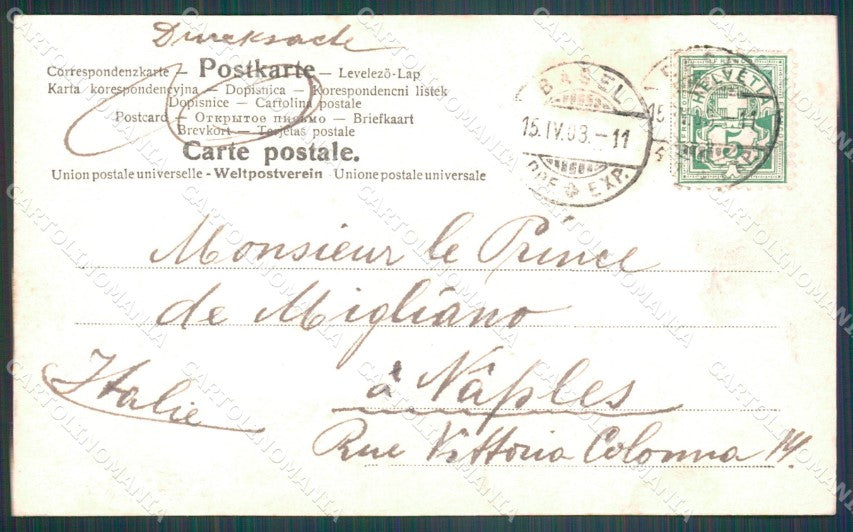 Drucksache
Correspondenzkarte — Postkarte — Levelező-Lap
Karta korespondencyjna — Dopisnica — Korespondencni listek
Dopisnice — Cartolina postale
Postcard — Открытое письмо — Briefkaart
Brevkort — Tarjetas postale
Carte postale.
Union postale universelle - Weltpostverein - Unione postale universale
BASEL
15.IV.03.-11
BRF EXP.
HELVETIA
FRANCO
5
Monsieur le Prince
de Migliano
à Nâples
Italie
Rue Vittoria Colonna 14.
CARTOLINOMANIA